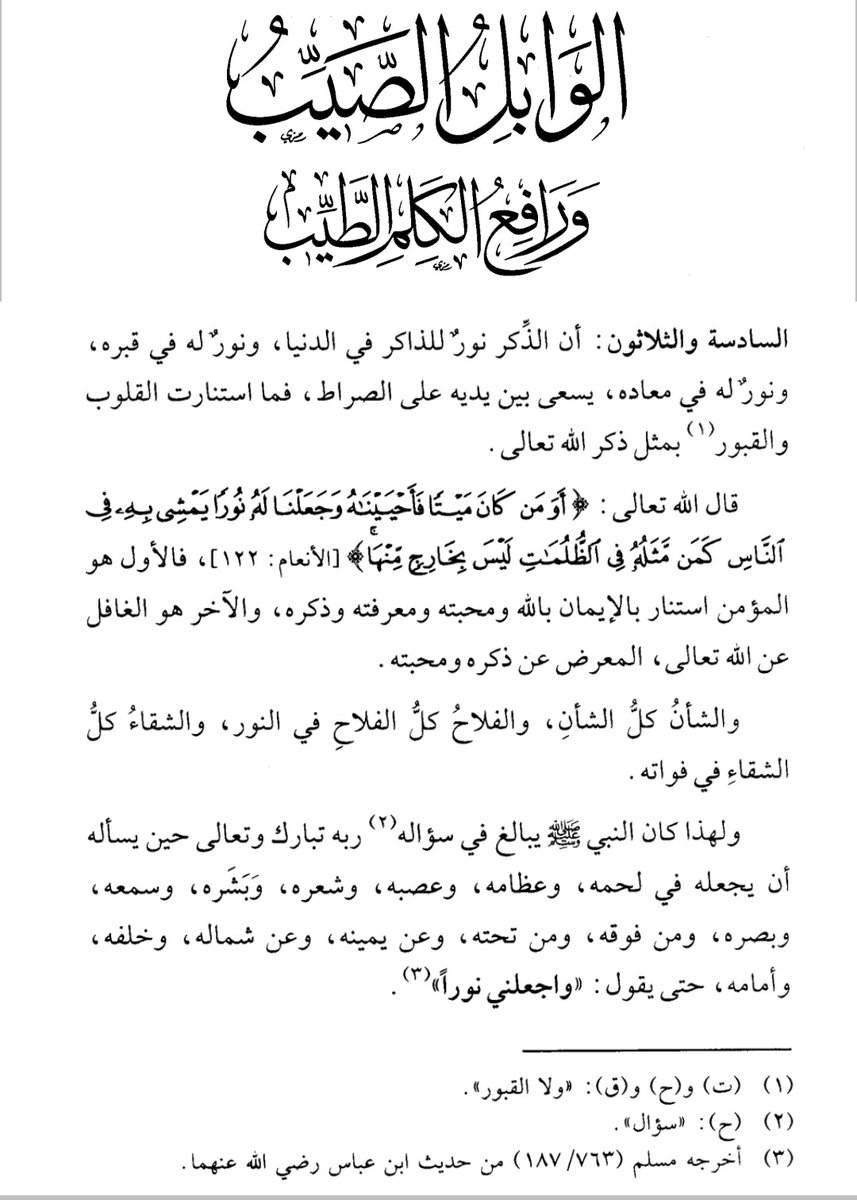 الوَابِلُ الصَّيِّبُ
وَرَافِعُ الكَلِمِ الطَّيِّبِ
السادسة والثلاثون: أن الذِّكر نورٌ للذاكر في الدنيا، ونورٌ له في قبره،
ونورٌ له في معاده، يسعى بين يديه على الصراط، فما استنارت القلوب
والقبور(١) بمثل ذكر الله تعالى.
قال الله تعالى: ﴿أَوَمَن كَانَ مَيْتًا فَأَحْيَيْنَٰهُ وَجَعَلْنَا لَهُۥ نُورًا يَمْشِى بِهِۦ فِى
ٱلنَّاسِ كَمَن مَّثَلُهُۥ فِى ٱلظُّلُمَٰتِ لَيْسَ بِخَارِجٍ مِّنْهَا ۚ﴾ [الأنعام: ١٢٢]، فالأول هو
المؤمن استنار بالإيمان بالله ومحبته ومعرفته وذكره، والآخر هو الغافل
عن الله تعالى، المعرض عن ذكره ومحبته.
والشأنُ كلُّ الشأنِ، والفلاحُ كلُّ الفلاحِ في النور، والشقاءُ كلُّ
الشقاءِ في فواته.
ولهذا كان النبي ﷺ يبالغ في سؤاله(٢) ربه تبارك وتعالى حين يسأله
أن يجعله في لحمه، وعظامه، وعصبه، وشعره، وَبَشَره، وسمعه،
وبصره، ومن فوقه، ومن تحته، وعن يمينه، وعن شماله، وخلفه،
وأمامه، حتى يقول: «واجعلني نوراً»(٣).
(١) (ت) و(ح) و(ق): «ولا القبور».
(٢) (ح): «سؤال».
(٣) أخرجه مسلم (٧٦٣/ ١٨٧) من حديث ابن عباس رضي الله عنهما.